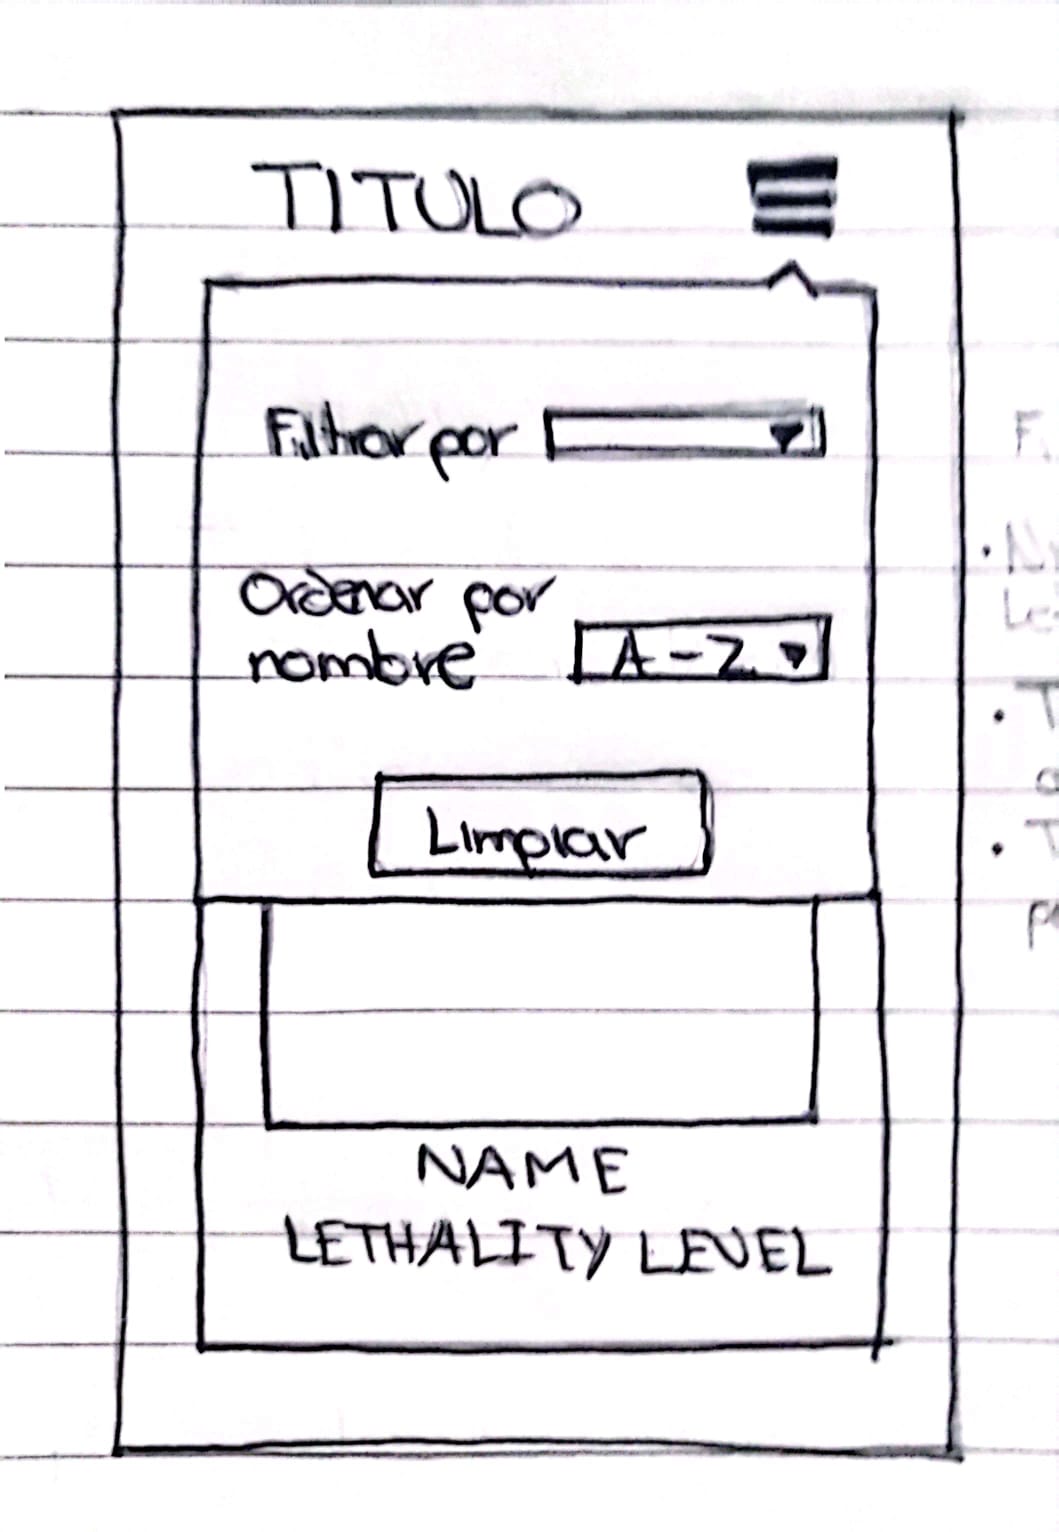 TITULO
Filtrar por
Ordenar por
nombre
A-Z
Limpiar
NAME
LETHALITY LEVEL